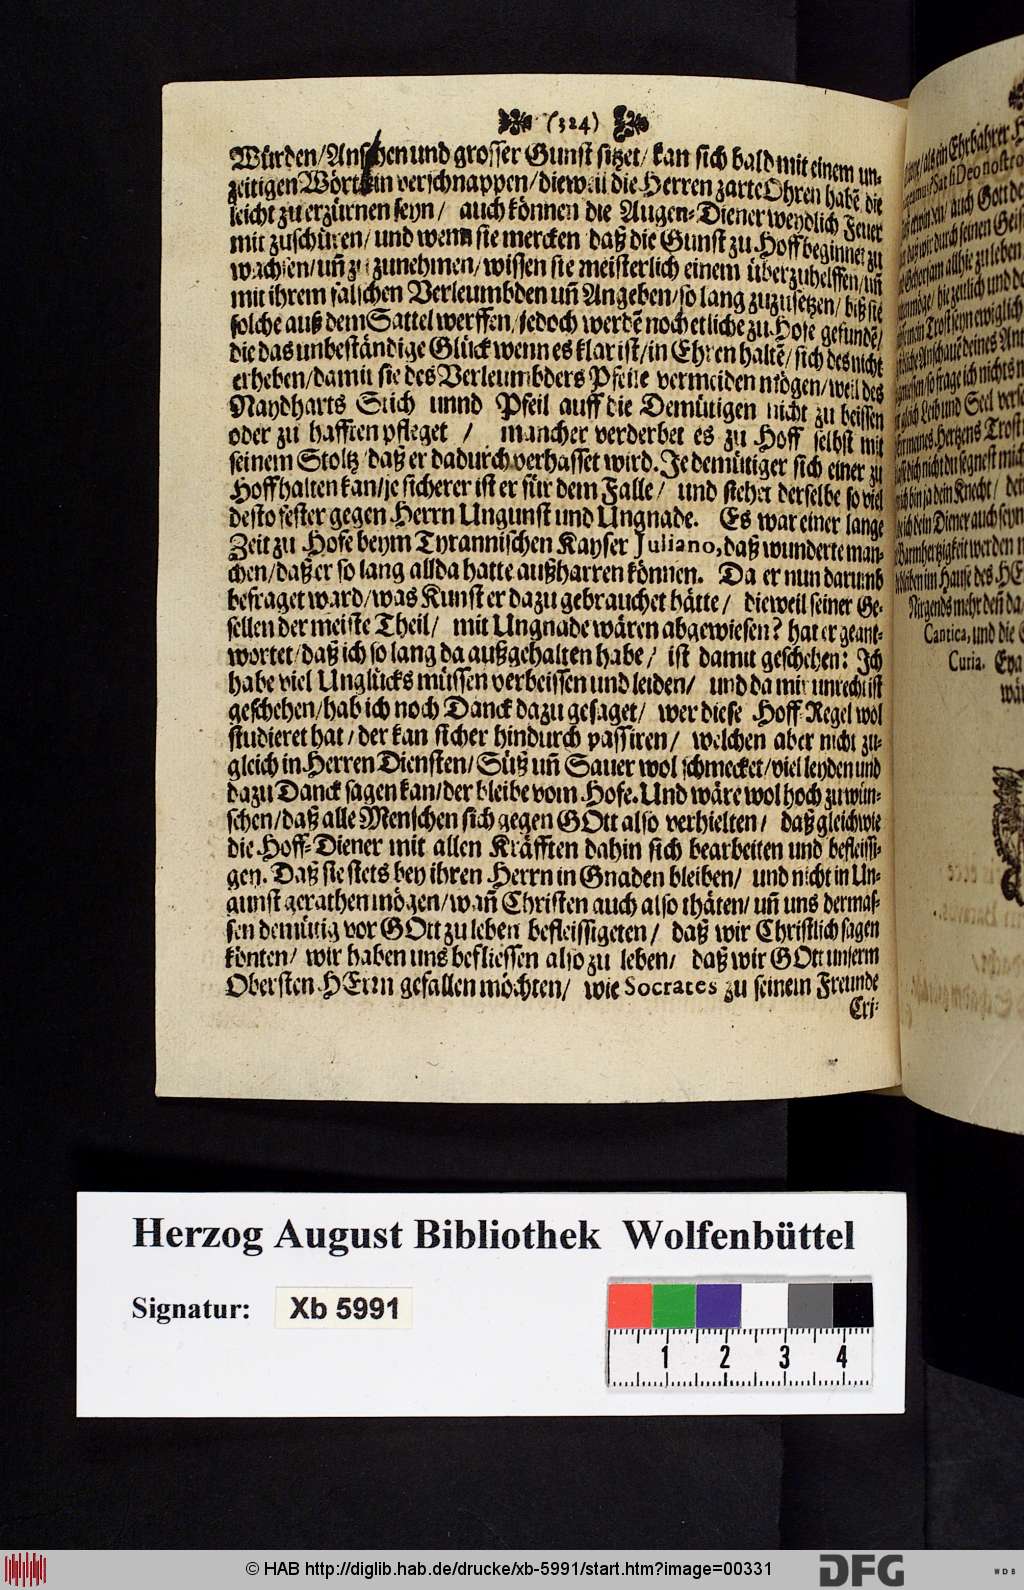 (324)
Würden/Ansehen und grosser Gunst sitzet/ kan sich bald mit einem un-
zeitigen Wörtlein verschnappen/dieweil die Herren zarte Ohren habẽ die
leicht zu erzürnen seyn/ auch können die Augen-Diener weydlich Feuer
mit zuschüren/ und wenn sie mercken daß die Gunst zu Hoff beginnet zu
wachsen/uñ zuzunehmen/wissen sie meisterlich einem überzuhelffen/uñ
mit ihrem falschen Verleumbden uñ Angeben/so lang zuzusetzen/ biß sie
solche auß dem Sattel werffen/jedoch werdẽ noch etliche zu Hofe gefundẽ/
die das unbeständige Glück wenn es klar ist/in Ehren haltẽ/ sich des nicht
erheben/damit sie des Verleumbders Pfeile vermeiden mögen/weil des
Naydharts Stich unnd Pfeil auff die Demütigen nicht zu beissen
oder zu hafften pfleget / mancher verderbet es zu Hoff selbst mit
seinem Stoltz/daß er dadurch verhasset wird. Je demütiger sich einer zu
Hoff halten kan/je sicherer ist er für dem Falle/ und stehet derselbe so viel
desto fester gegen Herrn Ungunst und Ungnade. Es war einer lange
Zeit zu Hofe beym Tyrannischen Kayser Juliano, daß wunderte man-
chen/daß er so lang allda hatte außharren können. Da er nun darumb
befraget ward/was Kunst er dazu gebrauchet hätte/ dieweil seiner Ge-
sellen der meiste Theil/ mit Ungnade wären abgewiesen? hat er geant-
wortet/daß ich so lang da außgehalten habe/ ist damit geschehen: Ich
habe viel Unglücks müssen verbeissen und leiden/ und da mir unrecht ist
geschehen/hab ich noch Danck dazu gesaget/ wer diese Hoff-Regel wol
studieret hat/der kan sicher hindurch passiren/ welchen aber nicht zu-
gleich in Herren Diensten/Süß uñ Sauer wol schmecket/viel leyden und
dazu Danck sagen kan/der bleibe vom Hofe. Und wäre wol hoch zu wün-
schen/daß alle Menschen sich gegen GOtt also verhielten/ daß gleichwie
die Hoff-Diener mit allen Kräfften dahin sich bearbeiten und befleissi-
gen. Daß sie stets bey ihren Herrn in Gnaden bleiben/ und nicht in Un-
gunst gerathen mögen/wañ Christen auch also thäten/ uñ uns dermas-
sen demütig vor GOtt zu leben befleissigeten/ daß wir Christlich sagen
könten/ wir haben uns befliessen also zu leben/ daß wir GOtt unserm
Obersten HErrn gefallen möchten/ wie Socrates zu seinem Freunde
Cri-
als ein Ehrbahrer
Deo nostro
auch Gott
daß wir durch seinen Geist
Gehorsam allhie zu leben
möge/ hie zeitlich und
Trost seyn ewiglich
Anschauẽ deines
so frage ich nichts
gleich Leib und Seel
meines Hertzens Trost
dich nicht du segnest mich
bin ja dein Knecht/
dein Diener auch seyn
Barmhertzigkeit werden
bleiben im Hause des
Nirgends mehr deñ da/
Cantica, und die
Curia.
wär
Herzog August Bibliothek Wolfenbüttel
Signatur: Xb 5991
1 2 3 4
© HAB http://diglib.hab.de/drucke/xb-5991/start.htm?image=00331
DFG
WDB